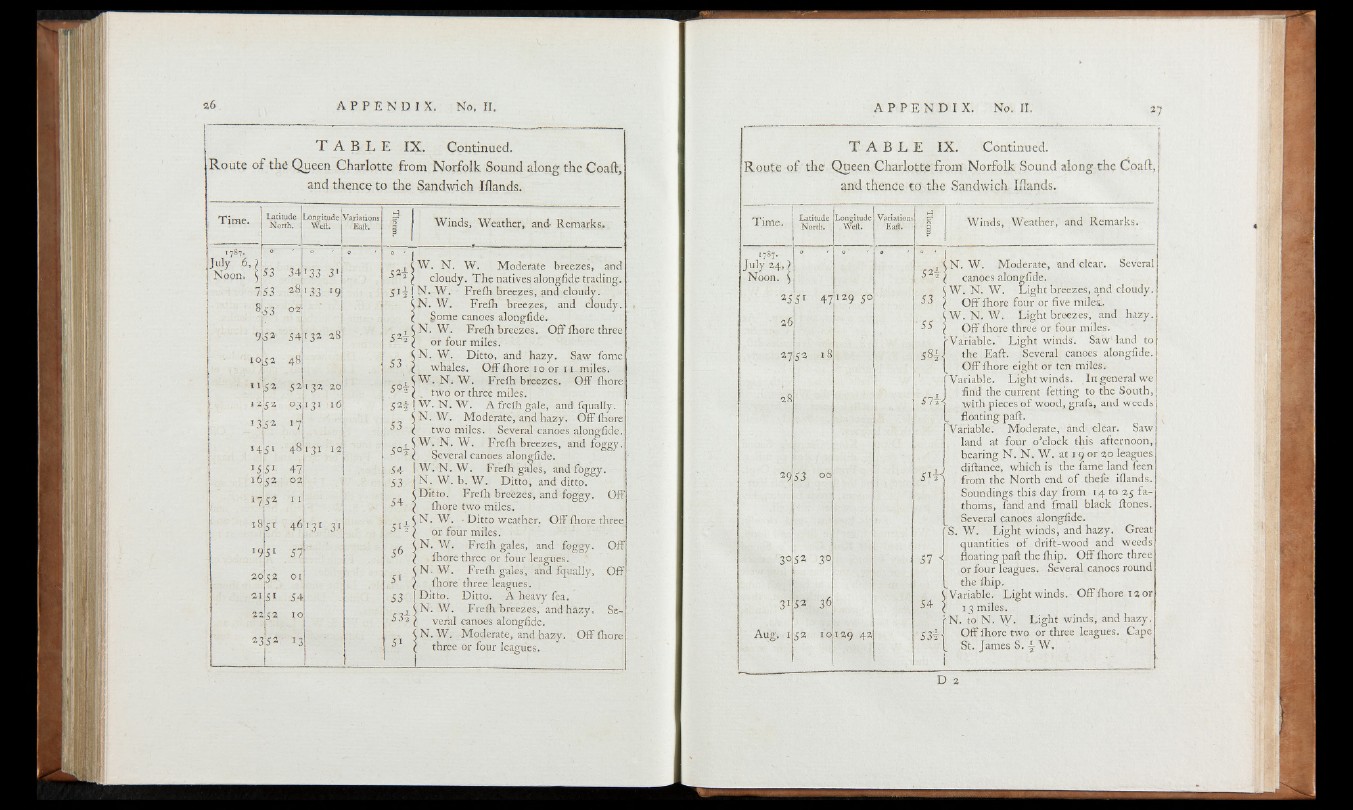 26 APPENDIX. No. II.
TABLE IX. Continued.
Route of the Queen Charlotte from Norfolk Sound along the Coaſt,
and thence to the Sandwich Iſlands.
Time. Latitude North. Longitude Weſt. Variations Eaſt. Therm. Winds, Weather, and Remarks.
1787. o ' o ' o ' o '
July 6, Noon. 53 34 133 31 52½ W. N. W. Moderate breezes, and
cloudy. The natives alongſide trading.
7 53 28 133 19 51½ N. W. Freſh breezes, and cloudy.
8 53 02 N. W. Freſh breezes, and cloudy.
Some canoes alongſide.
9 52 54 132 28 52½ N. W. Freſh breezes. Off ſhore three
or four miles.
10 52 48 53 N. W. Ditto, and hazy. Saw ſome
whales. Off ſhore 10 or 11 miles.
11 52 52 132 20 50½ W. N. W. Freſh breezes. Off ſhore
two or three miles.
12 52 03 131 16 52½ W. N. W. A freſh gale, and ſqually.
13 52 17 53 N. W. Moderate, and hazy. Off ſhore
two miles. Several canoes alongſide.
14 51 48 131 12 50½ W. N. W. Freſh breezes, and foggy.
Several canoes alongſide.
15 51 47 54 W. N. W. Freſh gales, and foggy.
16 52 02 53 N. W. b. W. Ditto, and ditto.
17 52 11 54 Ditto. Freſh breezes, and foggy. Off
ſhore two miles.
18 51 46 131 31 51½ N. W. Ditto weather. Off ſhore three
or four miles.
19 51 57 56 N. W. Freſh gales, and foggy. Off
ſhore three or four leagues.
20 52 01 51 N. W. Freſh gales, and ſqually, Off
ſhore three leagues.
21 51 54 53 Ditto. Ditto. A heavy ſea.
22 52 10 53½ N. W. Freſh breezes, and hazy. Se-
veral canoes alongſide.
23 52 13 51 N. W. Moderate, and hazy. Off ſhore
three or four leagues.
APPENDIX. No. II. 27
TABLE IX. Continued.
Route of the Queen Charlotte from Norfolk Sound along the Coaſt,
and thence to the Sandwich Iſlands.
Time. Latitude North. Longitude Weſt. Variations Eaſt. Therm. Winds, Weather, and Remarks.
1787. o ' o ' o ' o '
July 24, Noon. 52½ N. W. Moderate, and clear. Several
canoes alongſide.
25 51 47 129 50 53 W. N. W. Light breezes, and cloudy.
Off ſhore four or five miles.
26 55 W. N. W. Light breezes, and hazy.
Off ſhore three or four miles.
27 52 18 58½ Variable. Light winds. Saw land to
the Eaſt. Several canoes alongſide.
Off ſhore eight or ten miles.
28 57½ Variable. Light winds. In general we
find the current ſetting to the South,
with pieces of wood, graſs, and weeds
floating paſt.
29 53 00 51½ Variable. Moderate, and clear. Saw
land at four o'clock this afternoon,
bearing N. N. W. at 19 or 20 leagues
diſtance, which is the ſame land ſeen
from the North end of theſe iſlands.
Soundings this day from 14 to 25 fa-
thoms, ſand and ſmall black ſtones.
Several canoes alongſide.
30 52 30 57 S. W. Light winds, and hazy, Great
quantities of drift-wood and weeds
floating paſt the ſhip. Off ſhore three
or four leagues. Several canoes round
the ſhip.
31 52 36 54 Variable. Light winds. Off ſhore 12 or
13 miles.
Aug. 1 52 10 129 42 53½ N. to N. W. Light winds, and hazy.
Off ſhore two or three leagues. Cape
St. James S. ½ W.
D 2